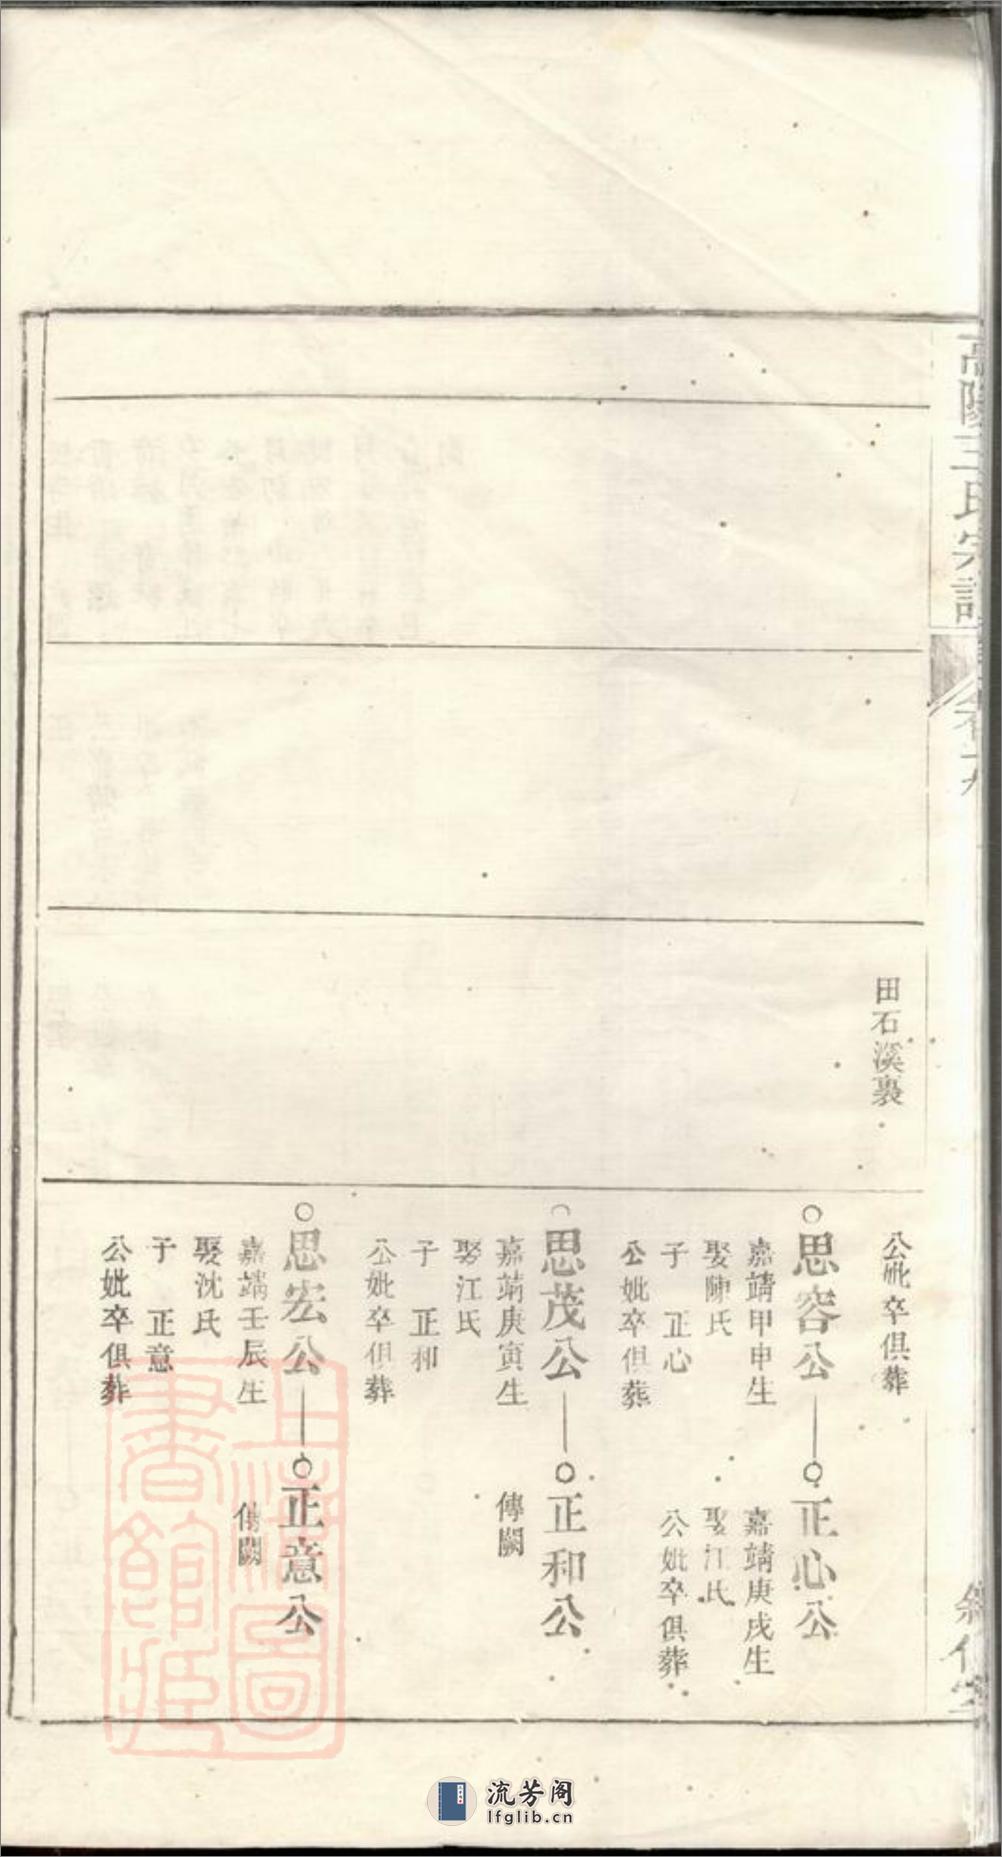 高陽王氏宗譜
田石溪裏
公妣卒俱葬
思容公
嘉靖甲申生
娶陳氏
子 正心
公妣卒俱葬
正心公
嘉靖庚戌生
娶江氏
公妣卒俱葬
思茂公
嘉靖庚寅生
娶江氏
子 正和
公妣卒俱葬
正和公
傳闕
思宏公
嘉靖壬辰生
娶沈氏
子 正意
公妣卒俱葬
正意公
傳闕
上海圖書館藏
流芳阁
lfglib.cn